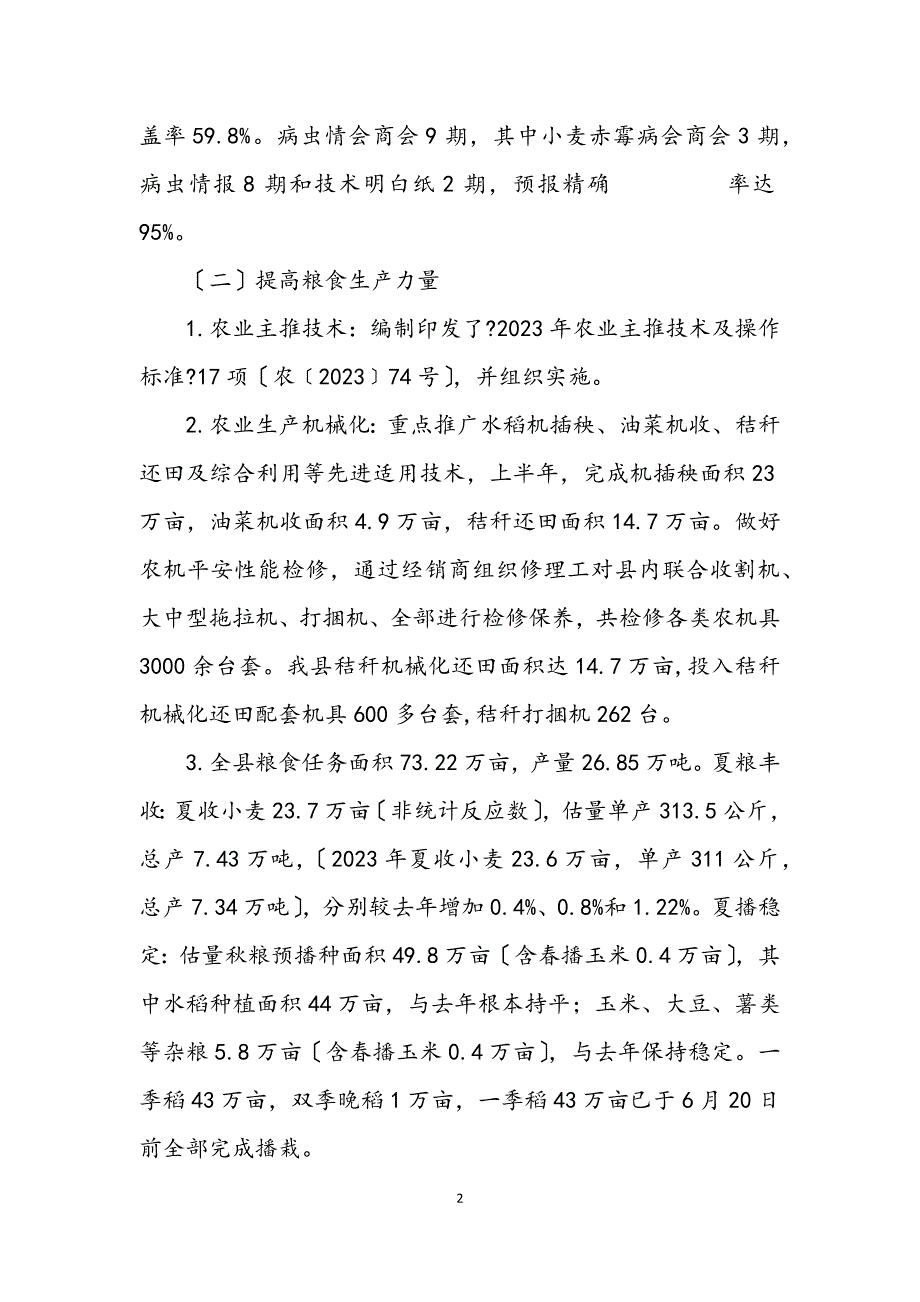 盖率59.8%。病虫情会商会9期，其中小麦赤霉病会商会3期，
病虫情报8期和技术明白纸2期，预报精确 率达
95%。
〔二〕提高粮食生产力量
1.农业主推技术：编制印发了?2023年农业主推技术及操作
标准?17项〔农﹝2023﹞74号〕，并组织实施。
2.农业生产机械化：重点推广水稻机插秧、油菜机收、秸秆
还田及综合利用等先进适用技术，上半年，完成机插秧面积23
万亩，油菜机收面积4.9万亩，秸秆还田面积14.7万亩。做好
农机平安性能检修，通过经销商组织修理工对县内联合收割机、
大中型拖拉机、打捆机、全部进行检修保养，共检修各类农机具
3000余台套。我县秸秆机械化还田面积达14.7万亩,投入秸秆
机械化还田配套机具600多台套,秸秆打捆机262台。
3.全县粮食任务面积73.22万亩，产量26.85万吨。夏粮丰
收：夏收小麦23.7万亩〔非统计反应数〕，估量单产313.5公斤，
总产7.43万吨，〔2023年夏收小麦23.6万亩，单产311公斤，
总产7.34万吨〕，分别较去年增加0.4%、0.8%和1.22%。夏播稳
定：估量秋粮预播种面积49.8万亩〔含春播玉米0.4万亩〕，其
中水稻种植面积44万亩，与去年根本持平；玉米、大豆、薯类
等杂粮5.8万亩〔含春播玉米0.4万亩〕，与去年保持稳定。一
季稻43万亩，双季晚稻1万亩，一季稻43万亩已于6月20日
前全部完成播栽。
2